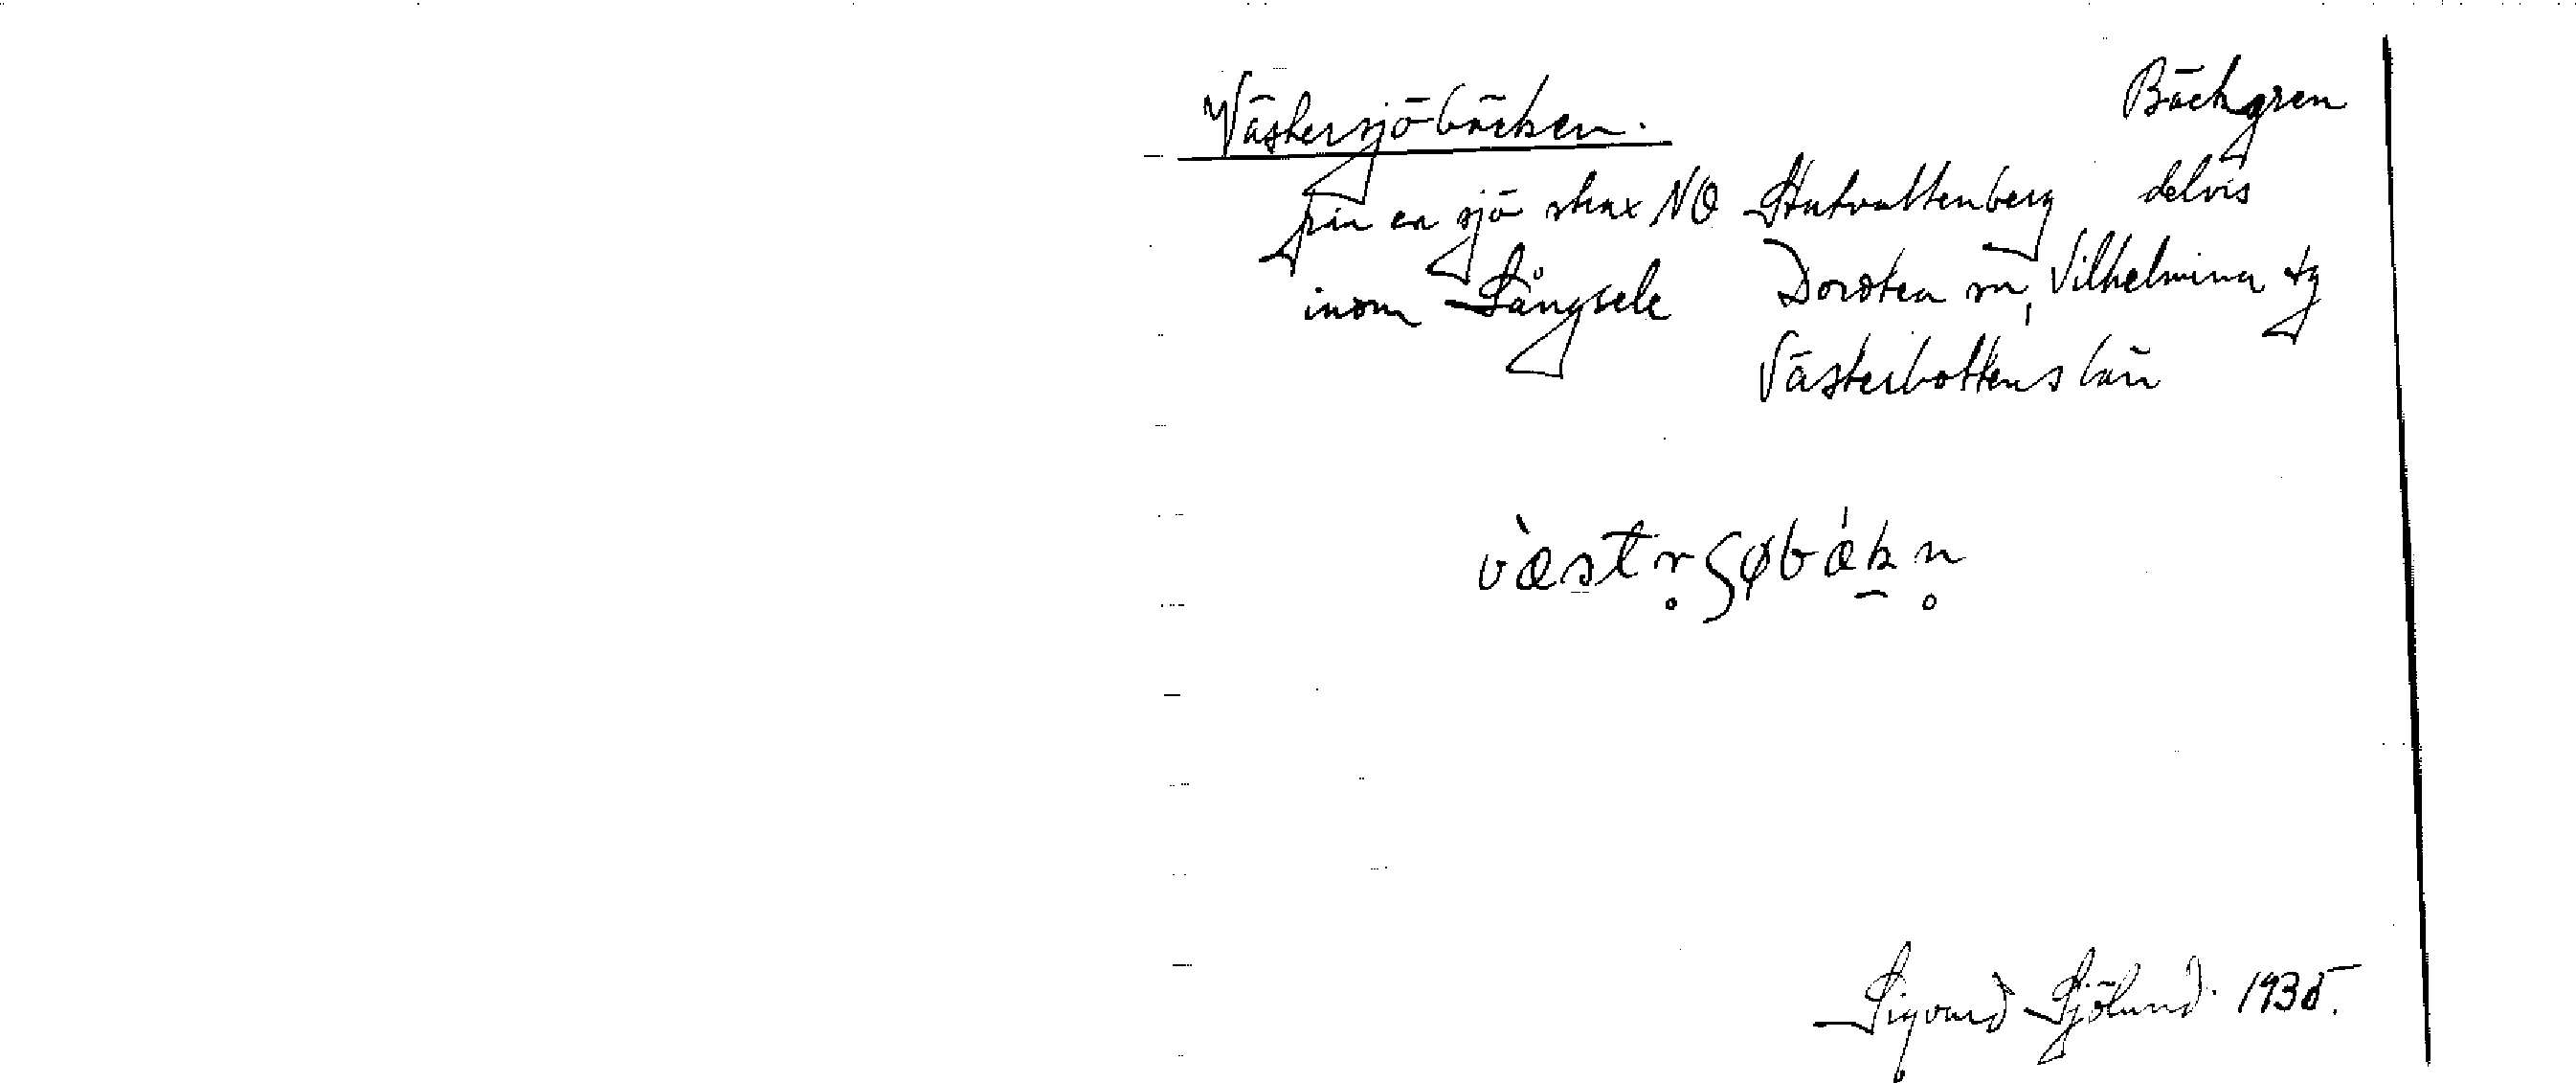 Västersjöbäcken. Bäckgren
från en sjö strax NO Stutvattenberg delvis
inom Långsele Dorotea sn, Vilhelmina tg
Västerbottens län
v̀æstr̥ʃøbǽkn̥
Sigvard Sjölund. 1935.